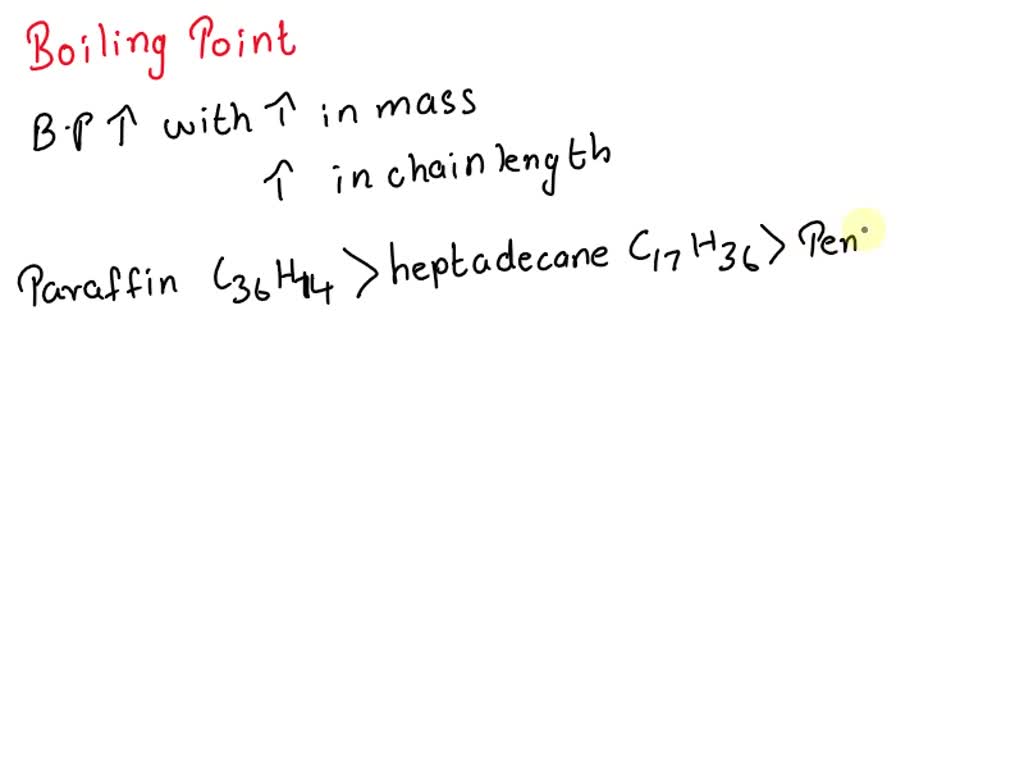 Boiling Point
B.P ↑ with ↑ in mass
↑ in chain length
Paraffin C36H14 > heptadecane C17H36 > Pen